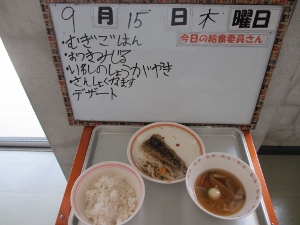 9月15日木曜日
今日の給食委員さん
・むぎごはん
・おつきみじる
・いわしのしょうがやき
・さんしょくなます
デザート